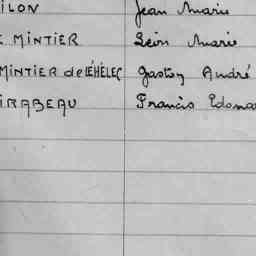 ILON Jean Marie
E MINTIER Léon Marie
MINTIER de LÉHÉLEC Gaston André
IRABEAU Francis Edoua